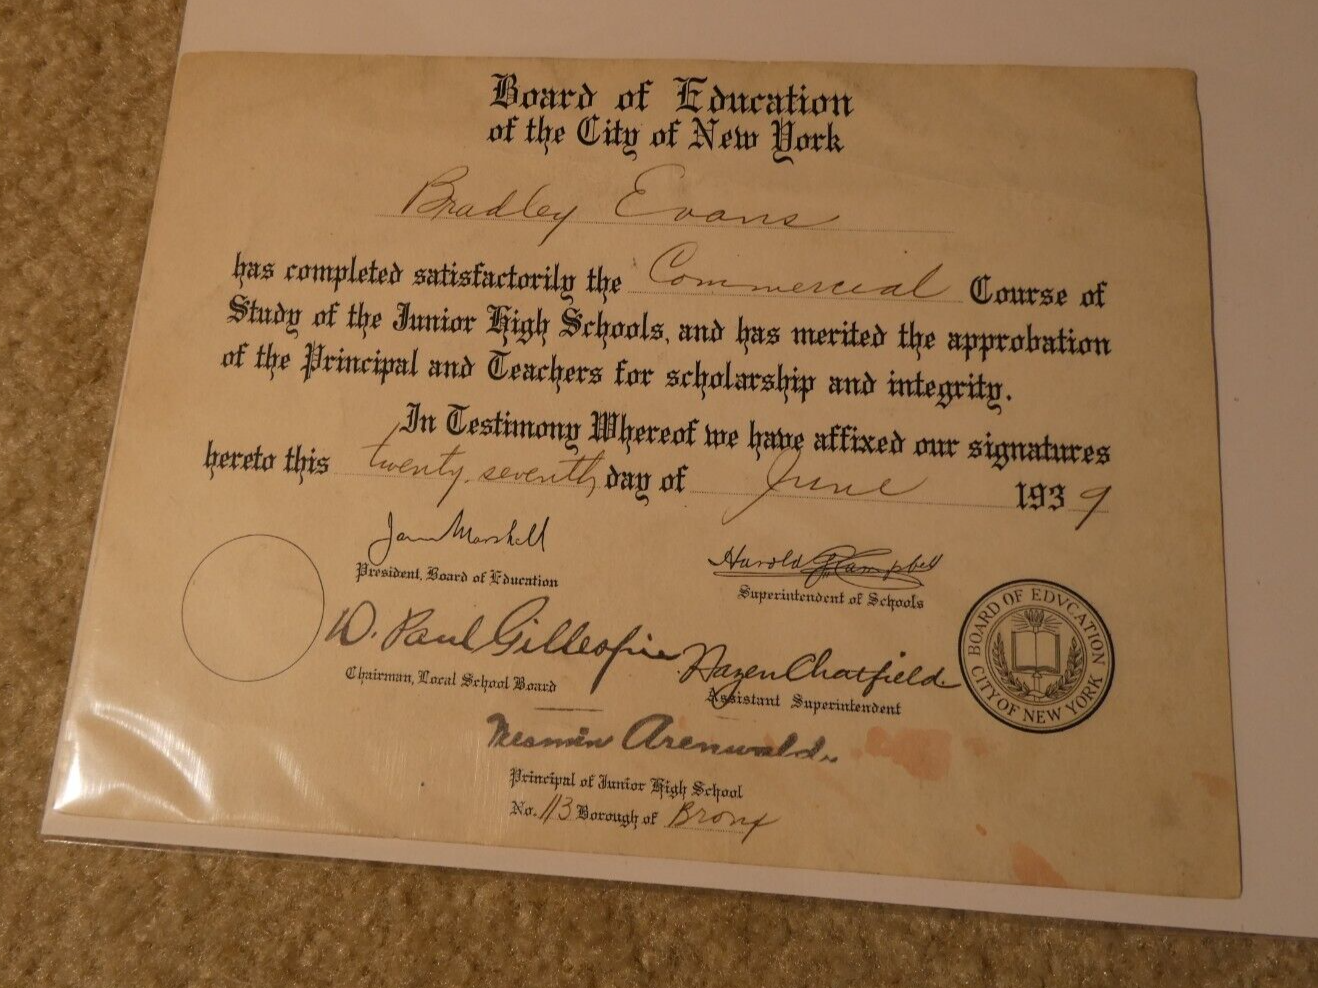 Board of Education
of the City of New York
Bradley Evans
has completed satisfactorily the Commercial Course of
Study of the Junior High Schools, and has merited the approbation
of the Principal and Teachers for scholarship and integrity.
In Testimony Whereof we have affixed our signatures
hereto this twenty-seventh day of June 1939
James Marshall
President, Board of Education
Harold G. Campbell
Superintendent of Schools
D. Paul Gillespie
Chairman, Local School Board
Hazen Chatfield
Assistant Superintendent
BOARD OF EDVCATION
CITY OF NEW YORK
Arenwald
Principal of Junior High School
No. 113 Borough of Bronx